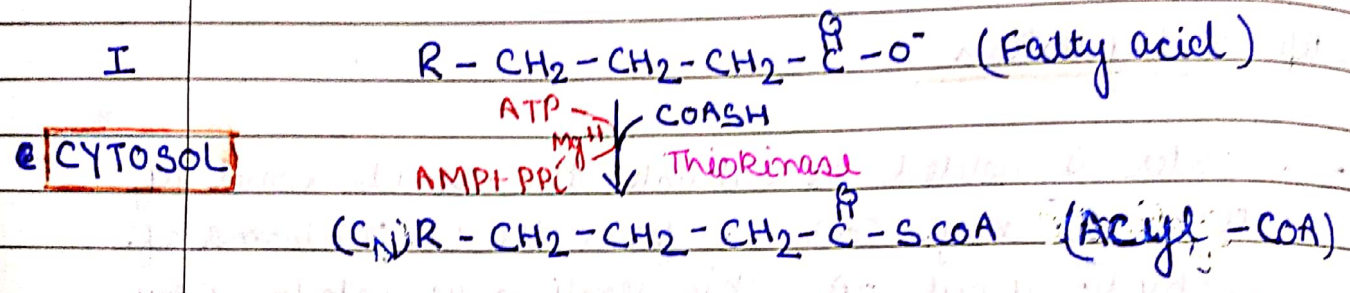 I R - CH2 - CH2 - CH2 - C - O- (Fatty acid)
O
ATP COASH
CYTOSOL Mg++
AMP+PPi Thiokinase
O
(CN)R - CH2 - CH2 - CH2 - C - SCOA (Acyl - COA)